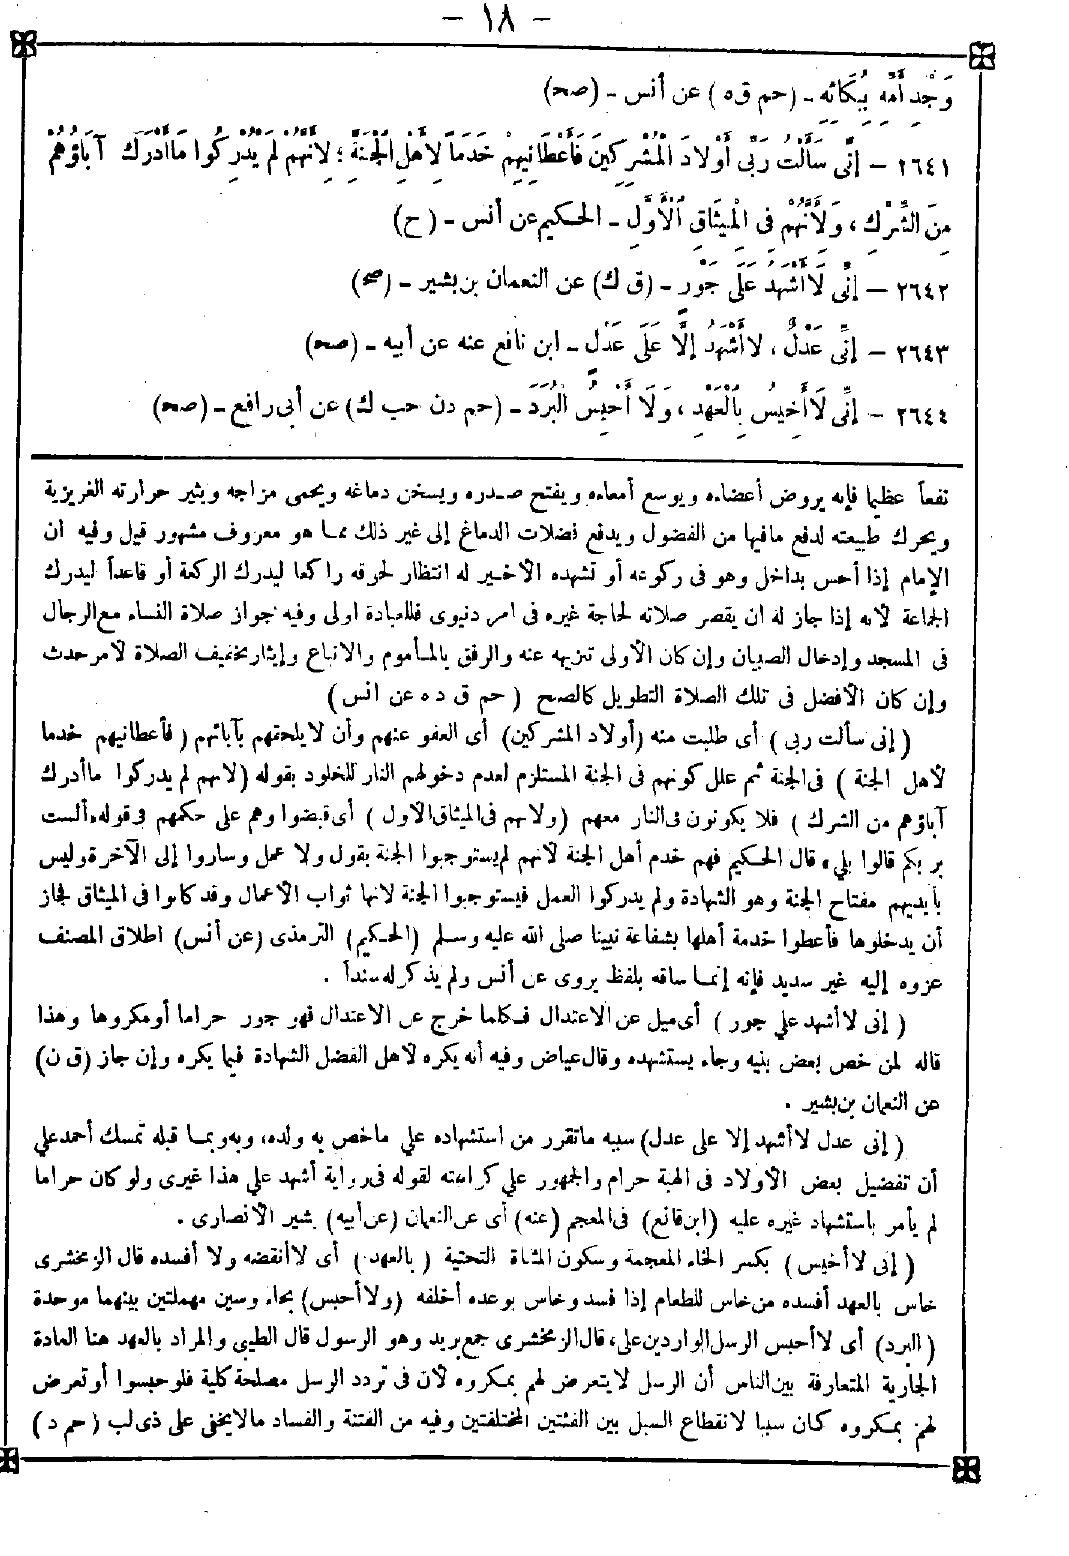 - ١٨ -
وَجْدِ أُمِّهِ بِبُكَائِهِ - (حم ق ه) عن أنس - (صح)
٢٦٤١ - إِنِّى سَأَلْتُ رَبِّى أَوْلَادَ الْمُشْرِكِينَ فَأَعْطَانِيهِمْ خَدَمًا لِأَهْلِ الْجَنَّةِ ؛ لِأَنَّهُمْ لَمْ يُدْرِكُوا مَا أَدْرَكَ آبَاؤُهُمْ
مِنَ الشِّرْكِ ، وَلِأَنَّهُمْ فِى الْمِيثَاقِ الْأَوَّلِ - الحكيم عن أنس - (ح)
٢٦٤٢ - إِنِّى لَا أَشْهَدُ عَلَى جَوْرٍ - (ق ك) عن النعمان بن بشير - (صح)
٢٦٤٣ - إِنِّى عَدْلٌ ، لَا أَشْهَدُ إِلَّا عَلَى عَدْلٍ - ابن نافع عنه عن أبيه - (صح)
٢٦٤٤ - إِنِّى لَا أَخِيسُ بِالْعَهْدِ ، وَلَا أَحْبِسُ الْبُرُدَ - (حم دن حب ك) عن أبى رافع - (صح)
نفعاً عظيما فإنه يروض أعضاءه ويوسع أمعاءه ويفتح صدره ويسخن دماغه ويحمى مزاجه ويثير حرارته الغريزية
ويحرك طبيعته لدفع مافيها من الفضول ويدفع فضلات الدماغ إلى غير ذلك مما هو معروف مشهور قيل وفيه ان
الإمام إذا أحس بداخل وهو فى ركوعه أو تشهده الأخير له انتظار لحوقه راكعا ليدرك الركعة أو قاعداً ليدرك
الجماعة لأنه إذا جاز له ان يقصر صلاته لحاجة غيره فى امر دنيوى فللعبادة اولى وفيه جواز صلاة النساء مع الرجال
فى المسجد وإدخال الصبيان وإن كان الأولى تنزيهه عنه والرفق بالمأموم والاتباع وإيثار تخفيف الصلاة لأمر حدث
وإن كان الأفضل فى تلك الصلاة التطويل كالصبح ( حم ق د ه عن انس )
( إنى سألت ربى ) أى طلبت منه (أولاد المشركين) أى العفو عنهم وأن لا يلحقهم بآبائهم ( فأعطانيهم خدما
لأهل الجنة ) فى الجنة ثم علل كونهم فى الجنة المستلزم لعدم دخولهم النار للخلود بقوله (لانهم لم يدركوا ماأدرك
آباؤهم من الشرك ) فلا يكونون فى النار معهم (ولانهم فى الميثاق الأول ) أى قبضوا وهم على حكمهم فى قوله «ألست
بربكم قالوا بلى» قال الحكيم فهم خدم أهل الجنة لأنهم لم يستوجبوا الجنة بقول ولا عمل وساروا إلى الآخرة وليس
بأيديهم مفتاح الجنة وهو الشهادة ولم يدركوا العمل فيستوجبوا الجنة لانها ثواب الأعمال وقد كانوا فى الميثاق فجاز
أن يدخلوها فأعطوا خدمة أهلها بشفاعة نبينا صلى الله عليه وسلم (الحكيم) الترمذى (عن أنس) اطلاق المصنف
عزوه إليه غير سديد فإنه إنما ساقه بلفظ يروى عن أنس ولم يذكر له سنداً .
( إنى لا أشهد على جور ) أى ميل عن الاعتدال فكلما خرج عن الاعتدال فهو جور حراما أو مكروها وهذا
قاله لمن خص بعض بنيه وجاء يستشهده وقال عياض وفيه أنه يكره لاهل الفضل الشهادة فيما يكره وإن جاز (ق ن)
عن النعمان بن بشير .
( إنى عدل لا أشهد إلا على عدل) سببه ماتقرر من استشهاده على ماخص به ولده، وبه وبما قبله تمسك أحمد على
أن تفضيل بعض الأولاد فى الهبة حرام والجمهور على كراهته لقوله فى رواية أشهد على هذا غيرى ولو كان حراما
لم يأمر باستشهاد غيره عليه (ابن قانع) فى المعجم (عنه) أى عن النعمان (عن أبيه) بشير الأنصارى .
( إنى لا أخيس ) بكسر الخاء المعجمة وسكون المثناة التحتية ( بالعهد ) أى لا أنقضه ولا أفسده قال الزمخشرى
خاس بالعهد أفسده من خاس للطعام إذا فسد وخاس بوعده أخلفه (ولا أحبس) بحاء وسين مهملتين بينهما موحدة
(البرد) أى لا أحبس الرسل الواردين على، قال الزمخشرى جمع بريد وهو الرسول قال الطيبى والمراد بالعهد هنا العادة
الجارية المتعارفة بين الناس أن الرسل لا يتعرض لهم بمكروه لأن فى تردد الرسل مصلحة كلية فلو حبسوا أو تعرض
لهم بمكروه كان سببا لانقطاع السبل بين الفئتين المختلفتين وفيه من الفتنة والفساد مالا يخفى على ذى لب ( حم د )